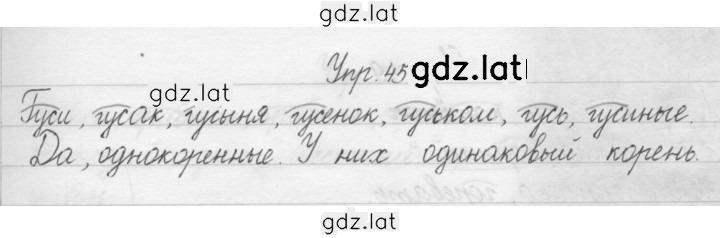 gdz.lat
Упр. 45 gdz.lat
Гуси, гусак, гусыня, гусенок, гуськом, гусь, гусиные.
gdz.lat
Да, однокоренные. У них одинаковый корень.
gdz.lat